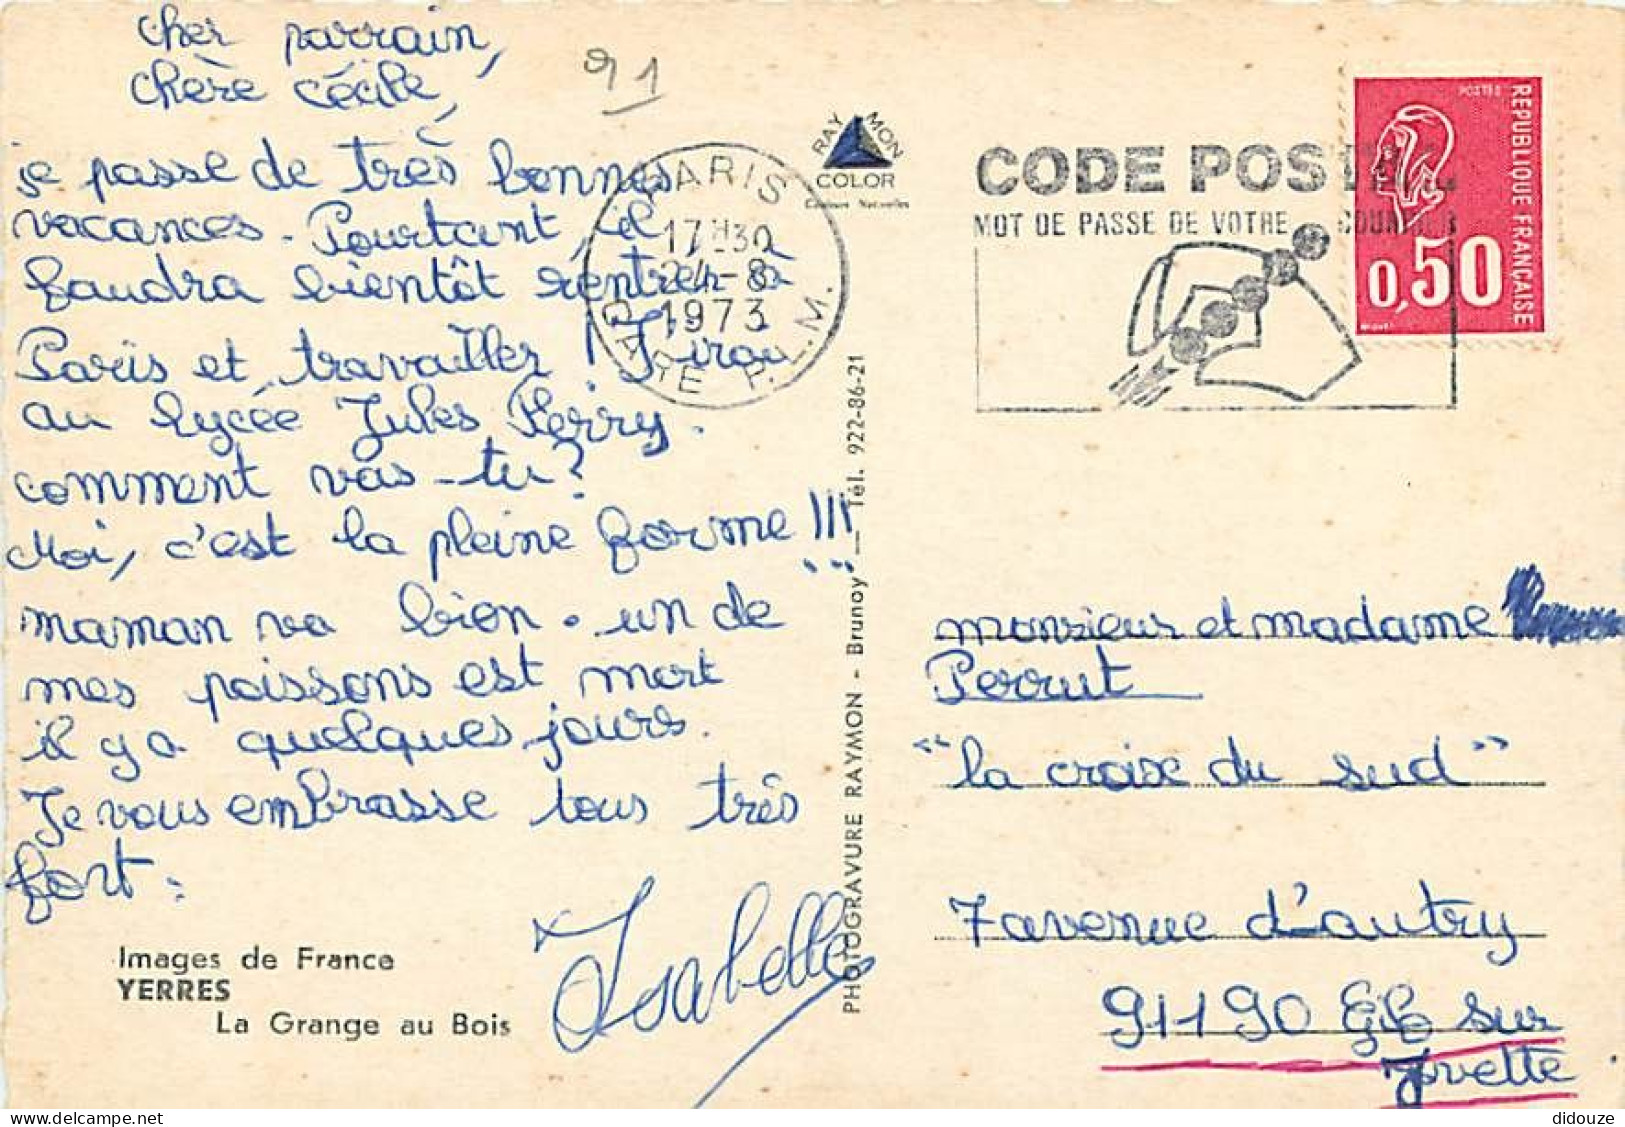 cher parrain,
chère cécile,
91
je passe de très bonnes
vacances. Pourtant, il
faudra bientôt rentrer à
Paris et travailler ! J'irai
au lycée Jules Ferry.
comment vas-tu ?
Moi, c'est la pleine forme !!!
maman va bien. un de
mes poissons est mort
il y a quelques jours.
Je vous embrasse tous très
fort.
Isabelle
Images de France
YERRES
La Grange au Bois
PARIS
17H30
24-8
1973
GARE P.L.M.
RAYMON
COLOR
Couleurs Naturelles
PHOTOGRAVURE RAYMON - Brunoy — Tél. 922-86-21
CODE POSTAL
MOT DE PASSE DE VOTRE COURRIER
POSTES
REPUBLIQUE FRANÇAISE
0,50
monsieur et madame
Perrut
"la croix du sud"
7 avenue d'autry
91190 Gif sur
Yvette
didouze